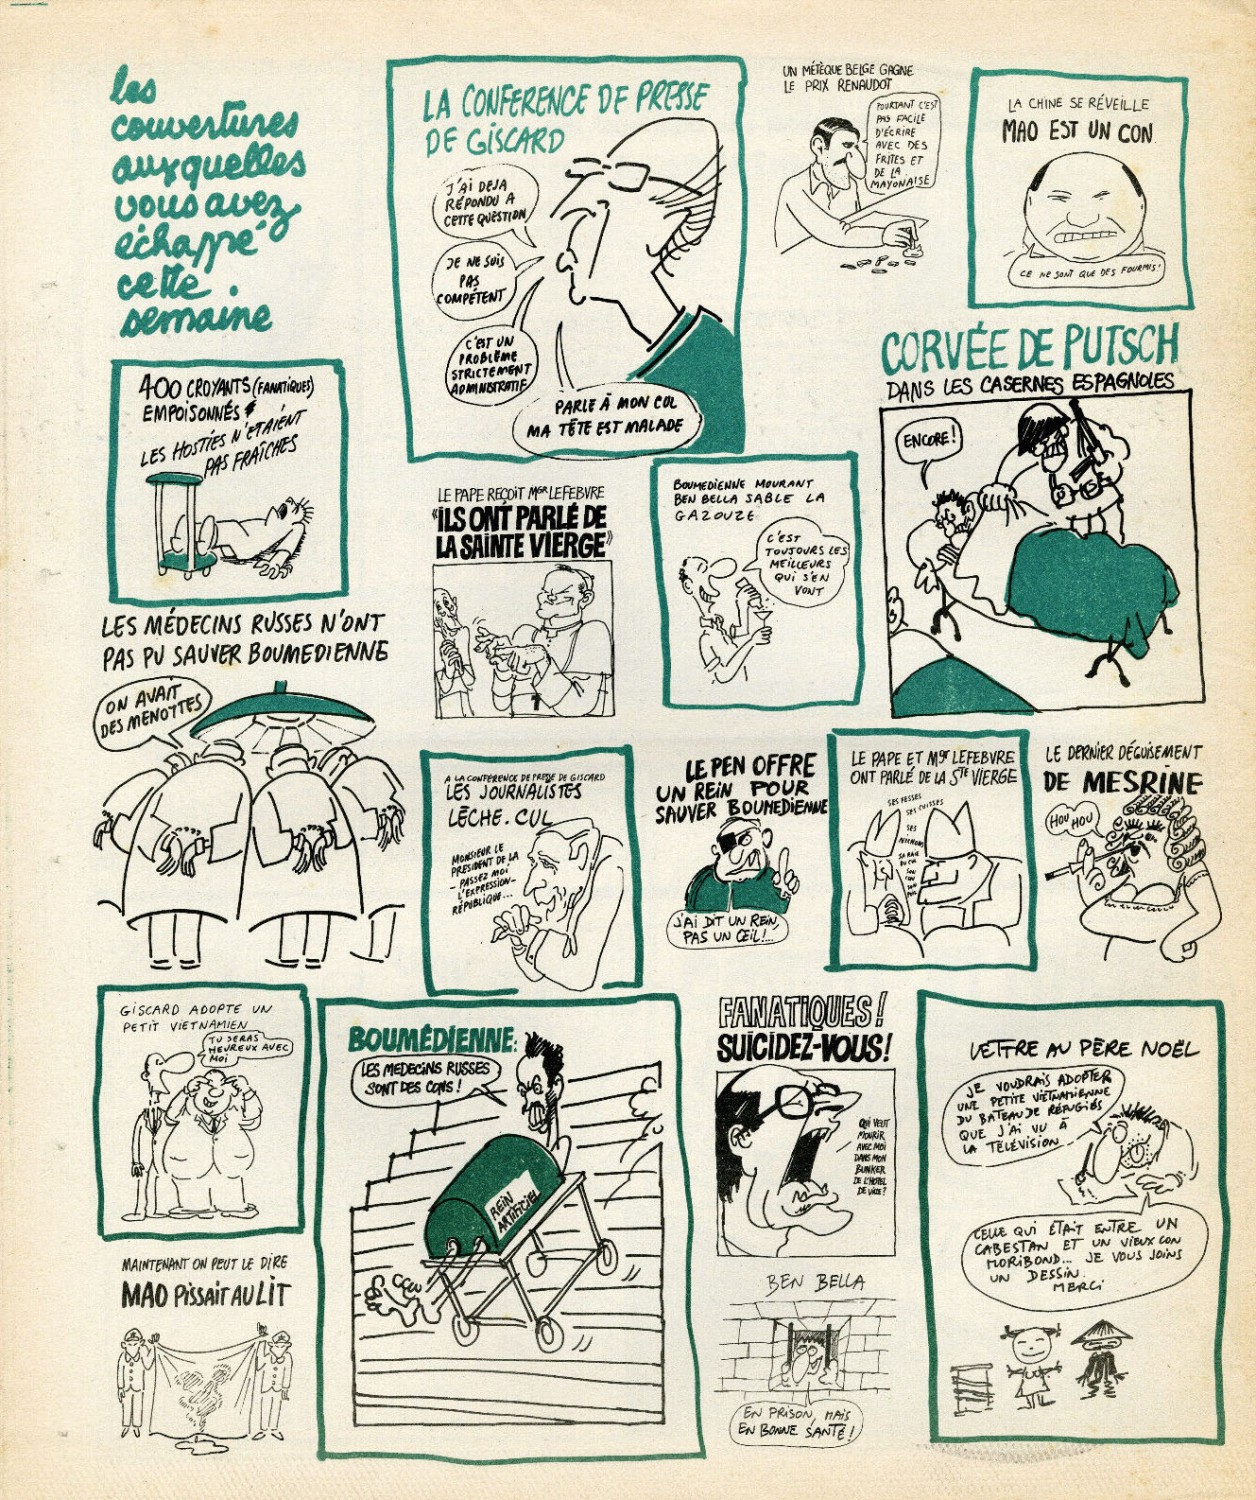 les
couvertures
auxquelles
vous avez
échappé
cette
semaine
LA CONFERENCE DE PRESSE
DE GISCARD
J'AI DEJA
RÉPONDU A
CETTE QUESTION
JE NE SUIS
PAS
COMPÉTENT
C'EST UN
PROBLÈME
STRICTEMENT
ADMINISTRATIF
PARLE À MON CUL
MA TÊTE EST MALADE
UN MÉTÈQUE BELGE GAGNE
LE PRIX RENAUDOT
POURTANT C'EST
PAS FACILE
D'ÉCRIRE
AVEC DES
FRITES ET
DE LA
MAYONAISE
LA CHINE SE RÉVEILLE
MAO EST UN CON
CE NE SONT QUE DES FOURMIS!
400 CROYANTS (FANATIQUES)
EMPOISONNÉS
LES HOSTIES N'ETAIENT
PAS FRAÎCHES
LE PAPE REÇOIT MGR LEFEBVRE
"ILS ONT PARLÉ DE
LA SAINTE VIERGE"
BOUMEDIENNE MOURANT
BEN BELLA SABLE LA
GAZOUZE
C'EST
TOUJOURS LES
MEILLEURS
QUI S'EN
VONT
CORVÉE DE PUTSCH
DANS LES CASERNES ESPAGNOLES
ENCORE!
LES MÉDECINS RUSSES N'ONT
PAS PU SAUVER BOUMEDIENNE
ON AVAIT
DES MENOTTES
A LA CONFERENCE DE PRESSE DE GISCARD
LES JOURNALISTES
LÈCHE.CUL
MONSIEUR LE
PRESIDENT DE LA
- PASSEZ MOI
L'EXPRESSION -
RÉPUBLIQUE...
LE PEN OFFRE
UN REIN POUR
SAUVER BOUMEDIENNE
J'AI DIT UN REIN,
PAS UN ŒIL!...
LE PAPE ET MGR LEFEBVRE
ONT PARLÉ DE LA STE VIERGE
SES FESSES
SES CUISSES
SES
NICHONS
SA RAIE
DU CUL
SON
LE DERNIER DÉGUISEMENT
DE MESRINE
HOU
HOU
GISCARD ADOPTE UN
PETIT VIETNAMIEN
TU SERAS
HEUREUX AVEC
MOI
BOUMÉDIENNE:
LES MEDECINS RUSSES
SONT DES CONS!
REIN
ARTIFICIEL
FANATIQUES!
SUICIDEZ-VOUS!
QUI VEUT
MOURIR
AVEC MOI
DANS MON
BUNKER
DE L'HOTEL
DE VILLE?
LETTRE AU PÈRE NOËL
JE VOUDRAIS ADOPTER
UNE PETITE VIETNAMIENNE
DU BATEAU DE RÉFUGIÉS
QUE J'AI VU À
LA TÉLÉVISION
CELLE QUI ÉTAIT ENTRE UN
CABESTAN ET UN VIEUX CON
MORIBOND... JE VOUS JOINS
UN DESSIN.
MERCI
MAINTENANT ON PEUT LE DIRE
MAO PISSAIT AU LIT
BEN BELLA
EN PRISON, MAIS
EN BONNE SANTÉ!